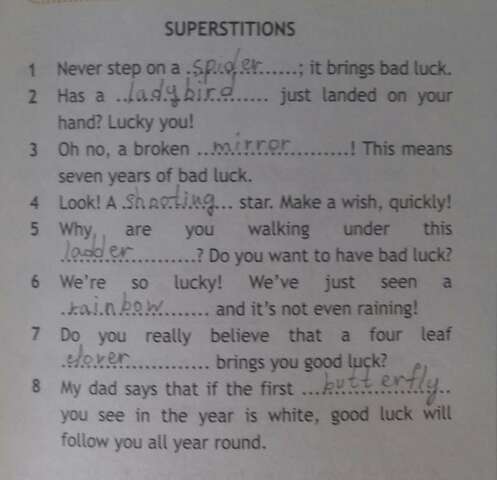 SUPERSTITIONS
1 Never step on a spider; it brings bad luck.
2 Has a ladybird just landed on your
hand? Lucky you!
3 Oh no, a broken mirror! This means
seven years of bad luck.
4 Look! A shooting star. Make a wish, quickly!
5 Why are you walking under this
ladder? Do you want to have bad luck?
6 We're so lucky! We've just seen a
rainbow and it's not even raining!
7 Do you really believe that a four leaf
clover brings you good luck?
8 My dad says that if the first butterfly
you see in the year is white, good luck will
follow you all year round.